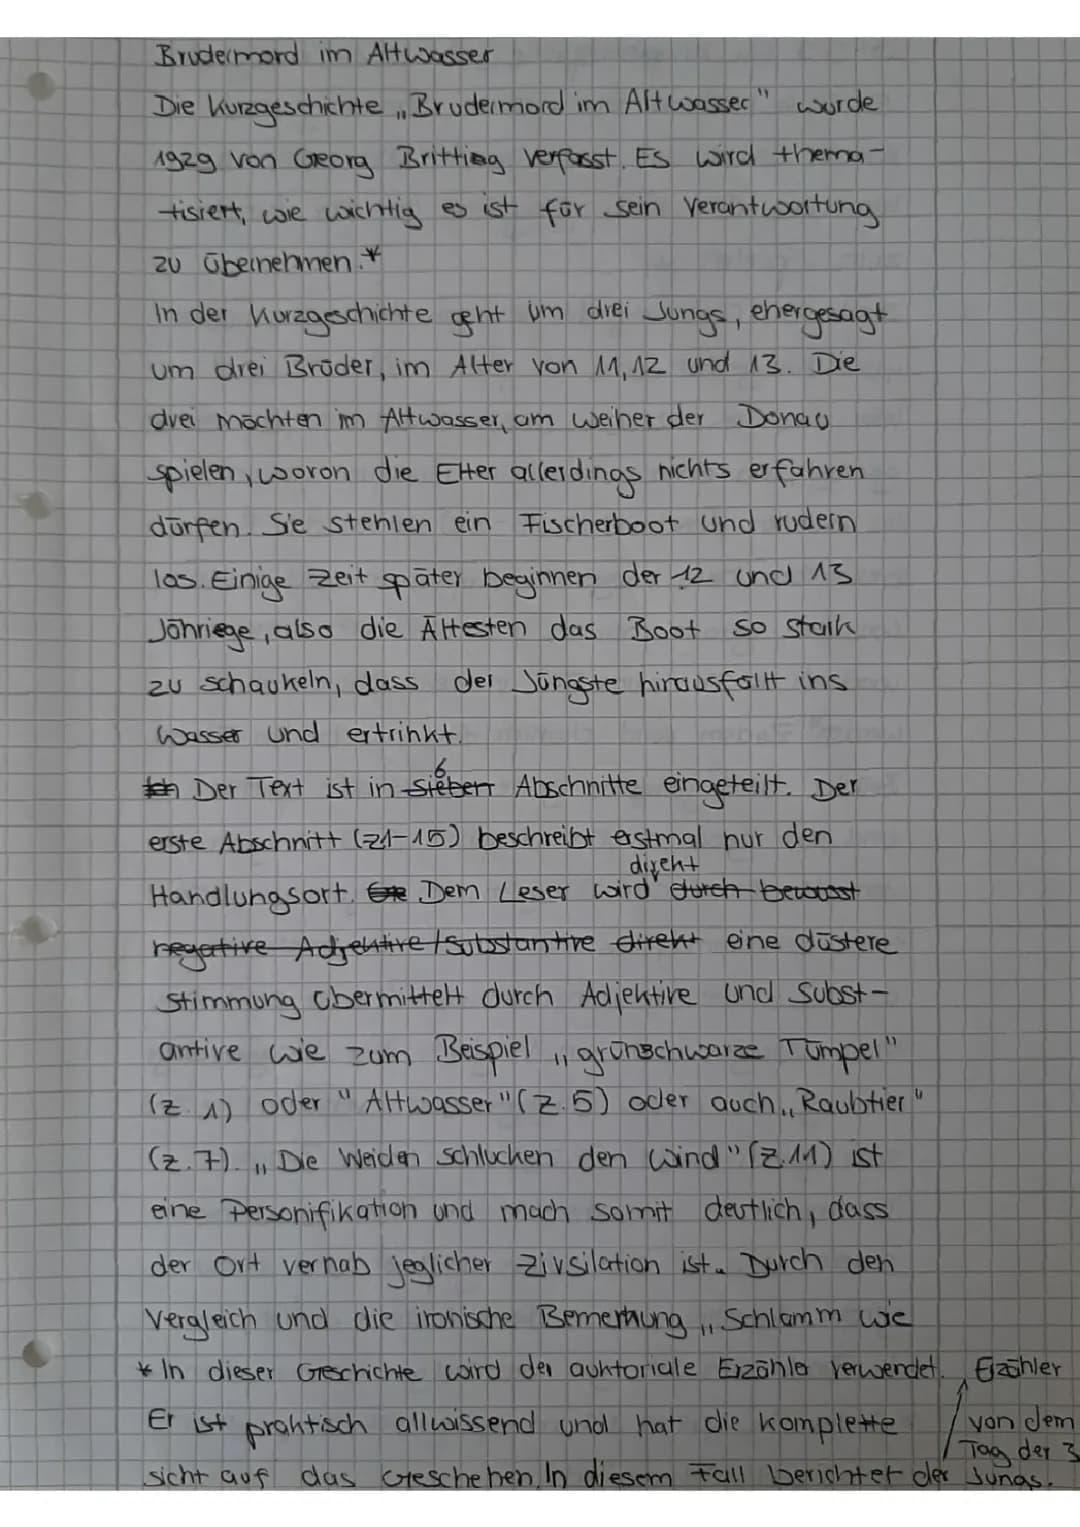 Brudermord im Altwasser
Die Kurzgeschichte „Brudermord im Altwasser" wurde
1929 von Georg Britting verfasst. Es wird thema-
tisiert, wie wichtig es ist für sein Verantwortung
zu übernehmen.*
In der Kurzgeschichte geht um drei Jungs, ehergesagt
um drei Brüder, im Alter von 11, 12 und 13. Die
drei möchten im Altwasser, am weiher der Donau
spielen, wovon die Elter allerdings nichts erfahren
dürfen. Sie stehlen ein Fischerboot und rudern
los. Einige Zeit später beginnen der 12 und 13
Jähriege, also die Ältesten das Boot so stark
zu schaukeln, dass der Jüngste hirausfällt ins
Wasser und ertrinkt.
Der Text ist in sieben 6 Abschnitte eingeteilt. Der
erste Abschnitt (Z1-15) beschreibt erstmal nur den
Handlungsort. Dem Leser wird direkt durch bewusst
negative Adjektive/Substantive direkt eine düstere
Stimmung übermittelt durch Adjektive und Subst-
antive wie zum Beispiel „grünschwarze Tümpel"
(Z. 1) oder "Altwasser" (Z. 5) oder auch „Raubtier"
(Z. 7). „Die Weiden schlucken den Wind" (Z. 11) ist
eine Personifikation und mach somit deutlich, dass
der Ort vernab jeglicher Zivsilation ist. Durch den
Vergleich und die ironische Bemerkung „Schlamm wie
* In dieser Geschichte wird der auktoriale Erzähler verwendet.
Er ist praktisch allwissend und hat die komplette
sicht auf das Geschehen. In diesem Fall berichtet der
Erzähler
von dem
Tag der 3
Jungs.